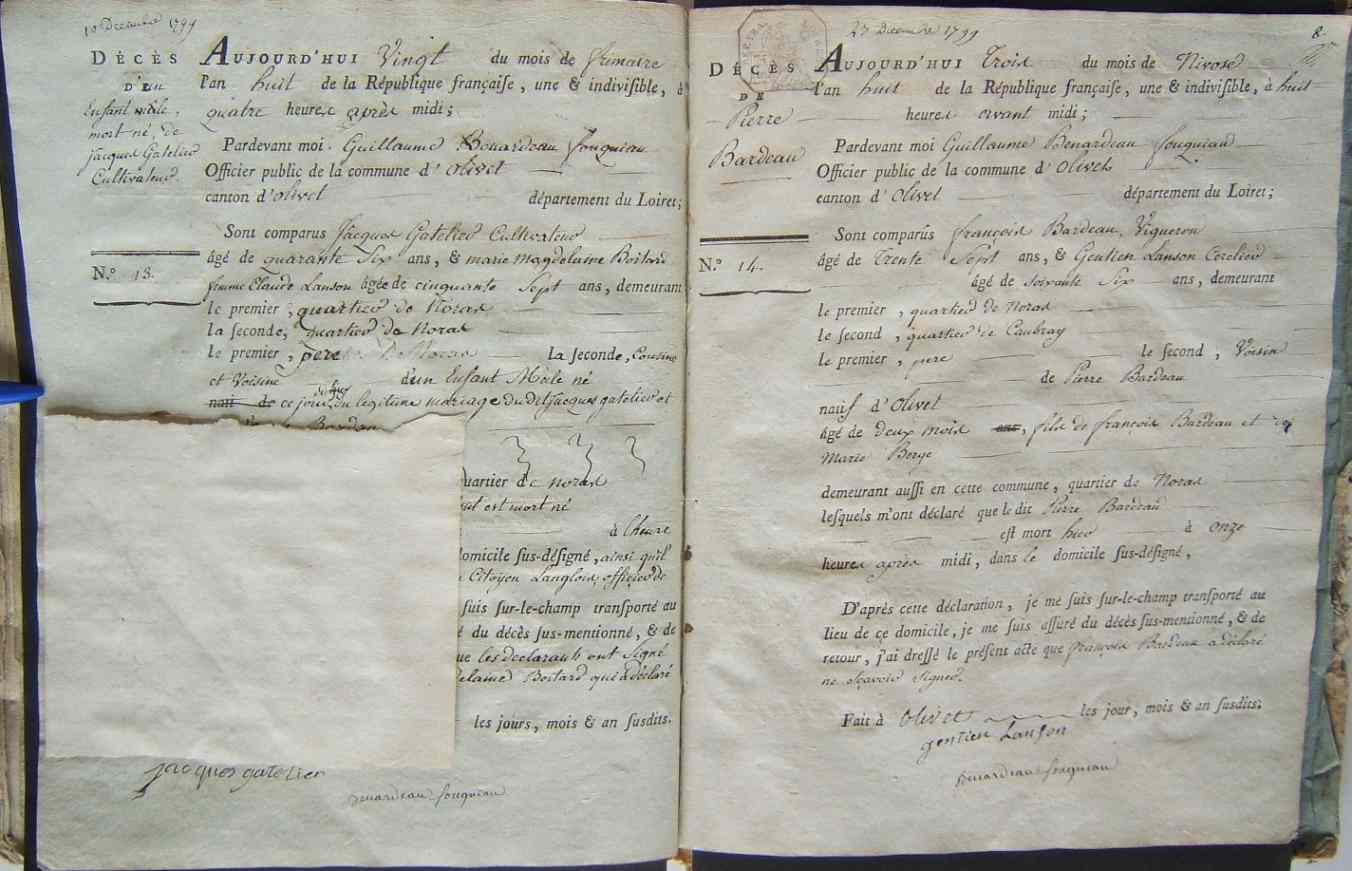 10 Decembre 1799
DÉCÈS
D'un
Enfant mâle,
mort né, de
Jacques Gatelier
Cultivateur.
N.º 13.
AUJOURD'HUI Vingt du mois de frimaire
l'an huit de la République françaiſe, une & indiviſible, à
quatre heures après midi;
Pardevant moi Guillaume Benardeau fouqueau
Officier public de la commune d'Olivet
canton d'olivet département du Loiret;
Sont comparus Jacques Gatelier Cultivateur
âgé de quarante Six ans, & marie magdelaine Boitard
femme Claude Lanson âgée de cinquante Sept ans, demeurant
le premier, quartier de Noras
la ſeconde, quartier de Noras
le premier, pere La ſeconde, Cousine
et Voisine d'un Enfant Mâle né
natif de ce jour du legitime mariage du dit Jacques gatelier et
Bardou
quartier de noras
est mort né
à l'heure
domicile ſus-déſigné, ainsi qu'il
Citoyen Langlois, officier de
ſuis ſur-le-champ tranſporté au
du décès ſus-mentionné, & de
que les declarants ont signé
delaine Boitard qui a déclaré
les jours, mois & an ſusdits.
jacques gatelier
Benardeau fouqueau
23 Decembre 1799
8
DÉCÈS
DE
Pierre
Bardeau
N.º 14.
AUJOURD'HUI Trois du mois de Nivose
l'an huit de la République françaiſe, une & indiviſible, à huit
heures avant midi;
Pardevant moi Guillaume Benardeau fouqueau
Officier public de la commune d'Olivet
canton d'Olivet département du Loiret;
Sont comparûs françois Bardeau, Vigneron
âgé de Trente Sept ans, & Gentien Lanson Cerclier
âgé de soixante Six ans, demeurant
le premier, quartier de Noras
le ſecond, quartier de Caubray
le premier, pere le ſecond, Voisin
de Pierre Bardeau
natif d'Olivet
âgé de deux mois ans, fils de françois Bardeau et de
Marie Berge
demeurant auſſi en cette commune, quartier de Noras
leſquels m'ont déclaré que le dit Pierre Bardeau
est mort hier à onze
heures après midi, dans le domicile ſus-déſigné,
D'après cette déclaration, je me ſuis ſur-le-champ tranſporté au
lieu de ce domicile, je me ſuis aſſuré du décès ſus-mentionné, & de
retour, j'ai dreſſé le préſent acte que françois Bardeau a déclaré
ne sçavoir signer.
Fait à Olivet les jour, mois & an ſusdits.
gentien Lanson
Benardeau fouqueau